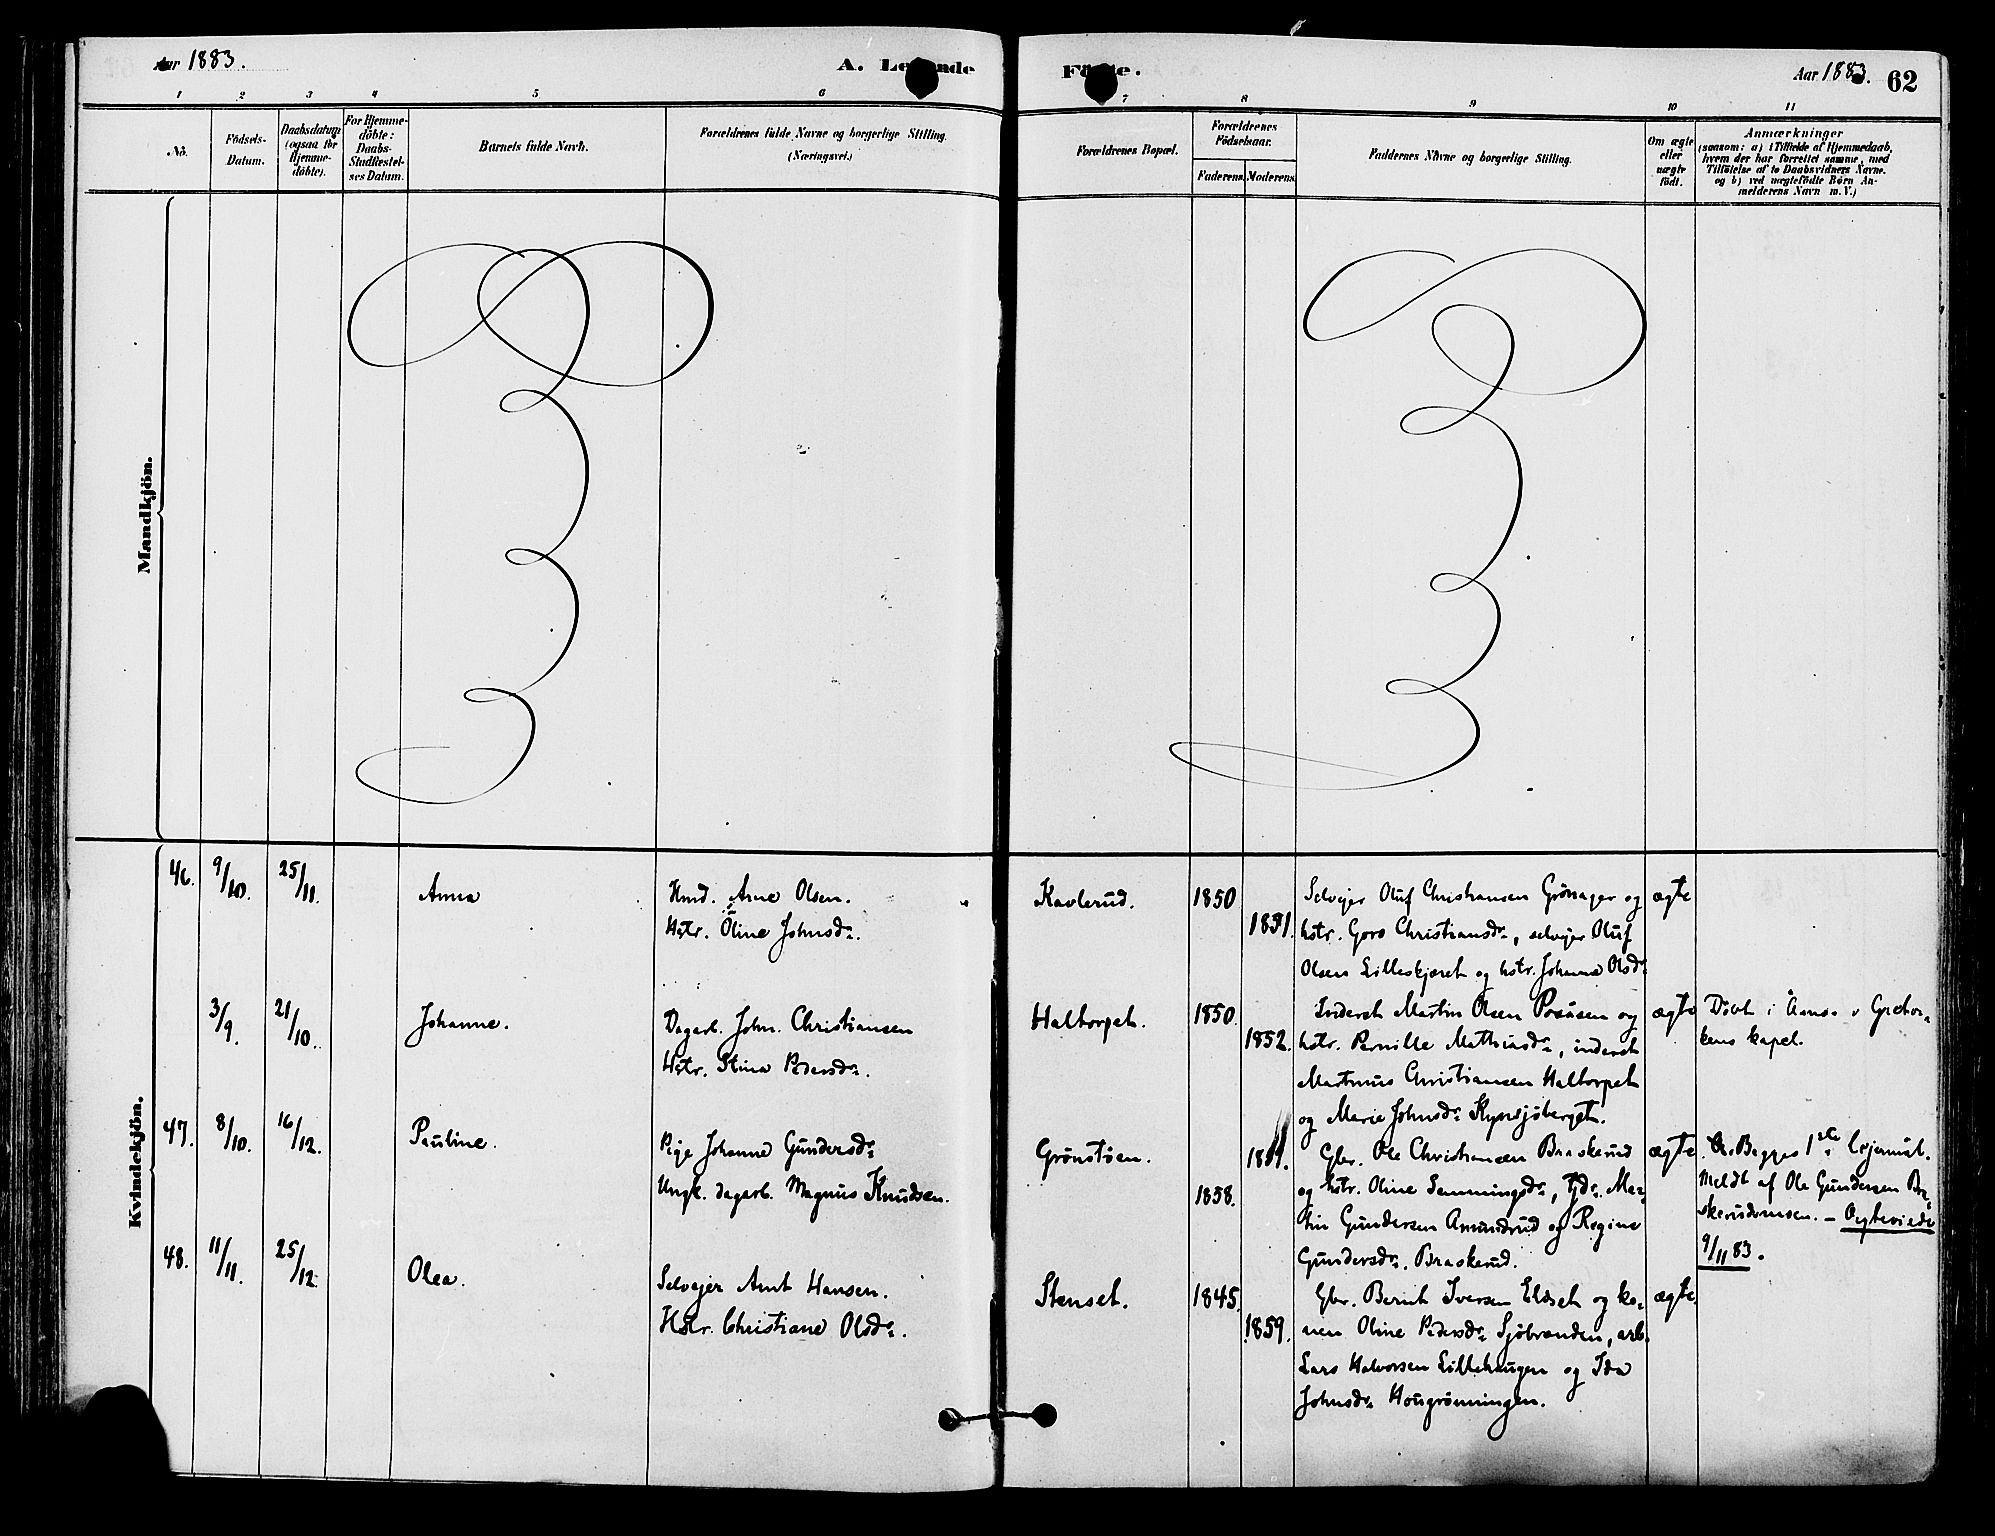 Aar 1883.
A. Levende Fødte.
Aar 1883. 62
1 2 3 4 5 6 7 8 9 10 11
No.
Födsels-Datum.
Daabsdatum (ogsaa for Hjemme-døbte).
For Hjemme-döbte: Daabs-Stadfæstel-ses Datum.
Barnets fulde Navn.
Forældrenes fulde Navne og borgerlige Stilling. (Næringsvei.)
Forældrenes Bopæl.
Forældrenes Födselsaar.
Faderens. Moderens.
Faddernes Navne og borgerlige Stilling.
Om ægte eller uægte født.
Anmærkninger
(saasom: a) i Tilfælde af Hjemmedaab,
hvem der har forrettet samme, med
Tilföielse af to Daabsvidners Navne.
og b) ved uægtefödte Börn An-
melderens Navn m. V.)
Mandkjön.
Kvindekjön.
46. 9/10. 25/11. Anna
Hmd. Arne Olsen.
Hstr. Oline Johnsdr.
Kavlerud. 1850 1851.
Selvejer Oluf Christiansen Grønager og
hstr. Goro Christiansdr., selvejer Oluf
Olsen Lilleskjæret og hstr. Johanne Olsdr.
ægte
3/9. 21/10. Johanne.
Dagarb. John Christiansen
Hstr. Stina Pedersdr.
Haltorpet. 1850. 1852.
Inderst Martin Olsen Posåsen og
hstr. Pernille Mathiasdr., inderst
Martinus Christiansen Haltorpet
og Marie Johnsdr. Kynsjöberget.
ægte
Døbt i
kens kapel.
47. 8/10. 16/12. Pauline.
Pige Johanne Gundersdr.
Ungk. dagarb. Magnus Knudsen.
Grønstøen. 1858.
Gbr. Ole Christiansen Braskerud
og hstr. Oline Semmingsdr., Tjd. Mar-
tin Gundersen Amundrud og Regine
Gundersdr. Braskerud.
ægte
Begges 1ste lejermål.
Meldt af Ole Gundersen Bra-
skerudmoen. – Ægteviede
9/11 83.
48. 11/11. 25/12. Olea.
Selvejer Arnt Hansen.
Hstr. Christiane Olsdr.
Stenset. 1845. 1859.
Gbr. Bernt Iversen Elset og ko-
nen Oline Pedersdr. Sjøbranden, arb.
Lars Halvorsen Lillehaugen og Ida
Johnsdr. Hougrønningen.
ægte.